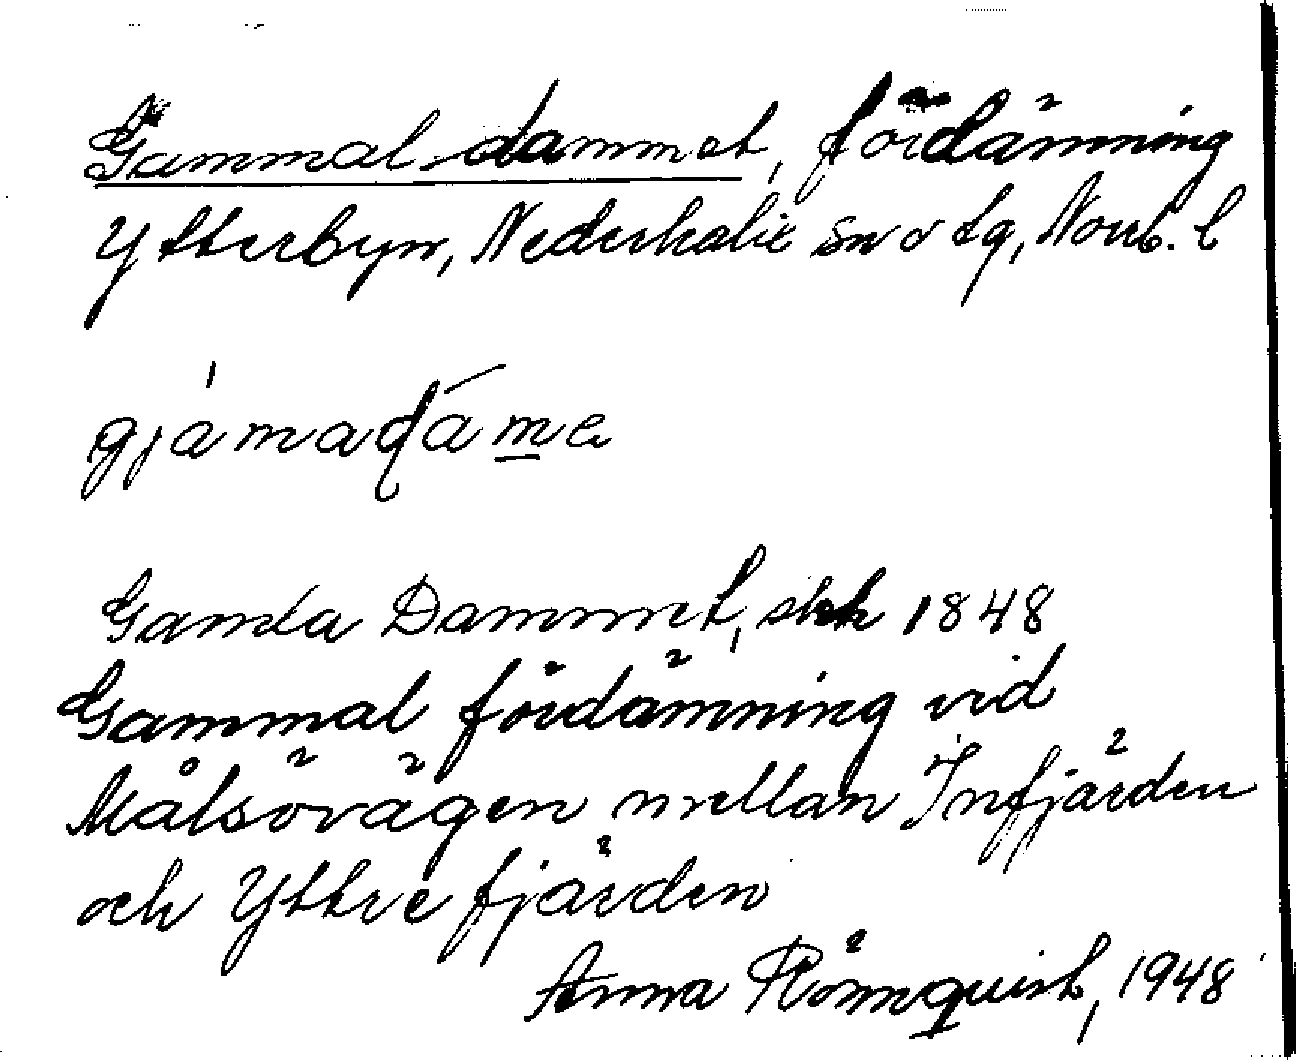 Gammal-dammet, fördämning
Ytterbyn, Nederkalix sn o tg, Norrb. l
gjámadáme
Gamla Dammet, skk 1848
Gammal fördämning vid
Målsövägen mellan Infjärden
och Yttre fjärden
Anna Rönnquist, 1948